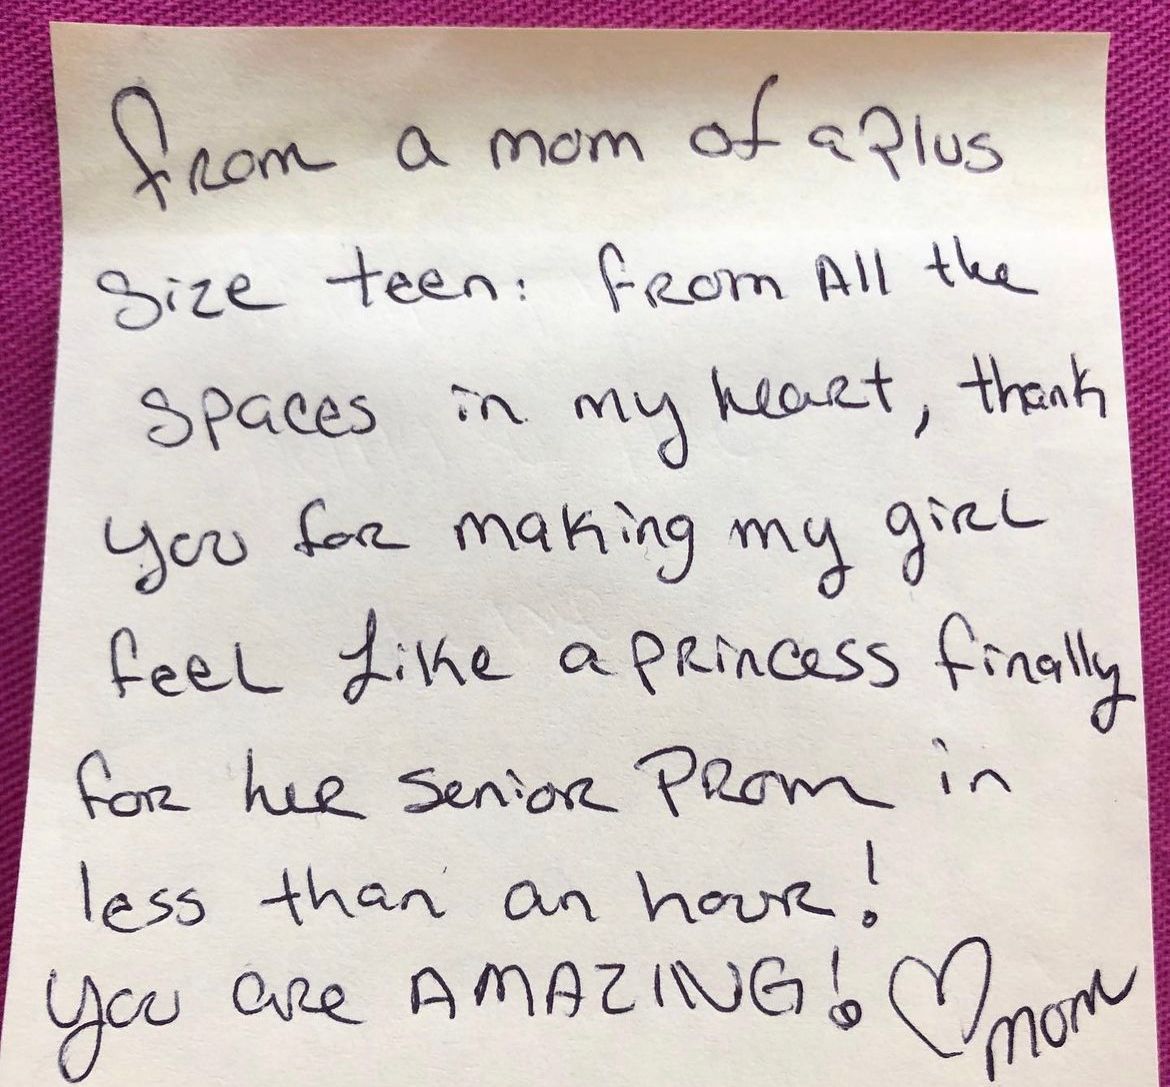 From a mom of a Plus
Size teen: from All the
spaces in my heart, thank
you for making my girl
feel Like a princess finally
for her senior Prom in
less than an hour!
you are AMAZING! ♡ mom